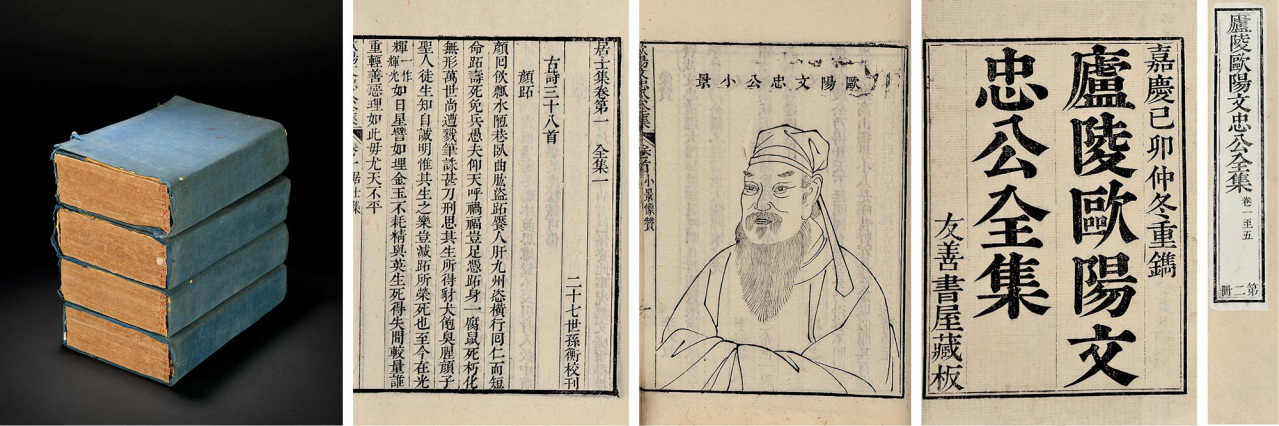 居士集卷第一　全集一
二十七世孫衡校刊
古詩三十八首
顏跖
顏回飲瓢水陋巷臥曲肱盜跖饜人肝九州恣橫行回仁而短
命跖壽死免兵愚夫仰天呼禍福豈足憑跖身一腐鼠死朽化
無形萬世尚遭戮筆誅甚刀刑思其生所得豺犬飽臭腥顏子
聖人徒生知自誠明惟其生之樂豈減跖所榮死也至今在光
輝一作輝光如日星譬如埋金玉不耗精與英生死得失間較量誰
重輕善惡理如此毋尤天不平
歐陽文忠公小景
卷首　小景像贊
嘉慶己卯仲冬重鐫
廬陵歐陽文
忠公全集
友善書屋藏板
廬陵歐陽文忠公全集 卷一至五
第二冊